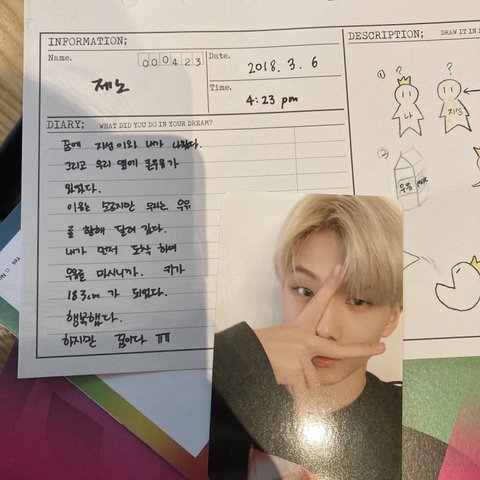 INFORMATION;
Name.
000423
제노
Date.
2018. 3. 6
Time.
4:23 pm
DIARY; WHAT DID YOU DO IN YOUR DREAM?
꿈에 지성이와 내가 나왔다.
그리고 우리 옆에 큰우유가
있었다.
이유는 모르지만 우리는 우유
를 향해 달려 갔다.
내가 먼저 도착 하여
우유를 마시니까. 키가
183cm 가 되었다.
행복했다.
하지만 꿈이다 ㅠㅠ
DESCRIPTION; DRAW IT IN
①
? ?
나
지성
②
우유